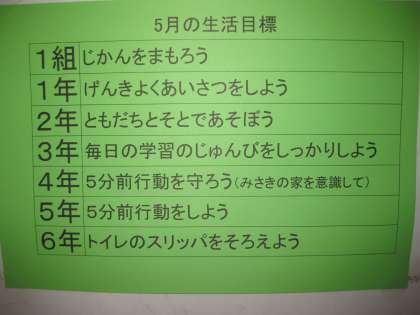 5月の生活目標
1組 じかんをまもろう
1年 げんきよくあいさつをしよう
2年 ともだちとそとであそぼう
3年 毎日の学習のじゅんびをしっかりしよう
4年 5分前行動を守ろう(みさきの家を意識して)
5年 5分前行動をしよう
6年 トイレのスリッパをそろえよう